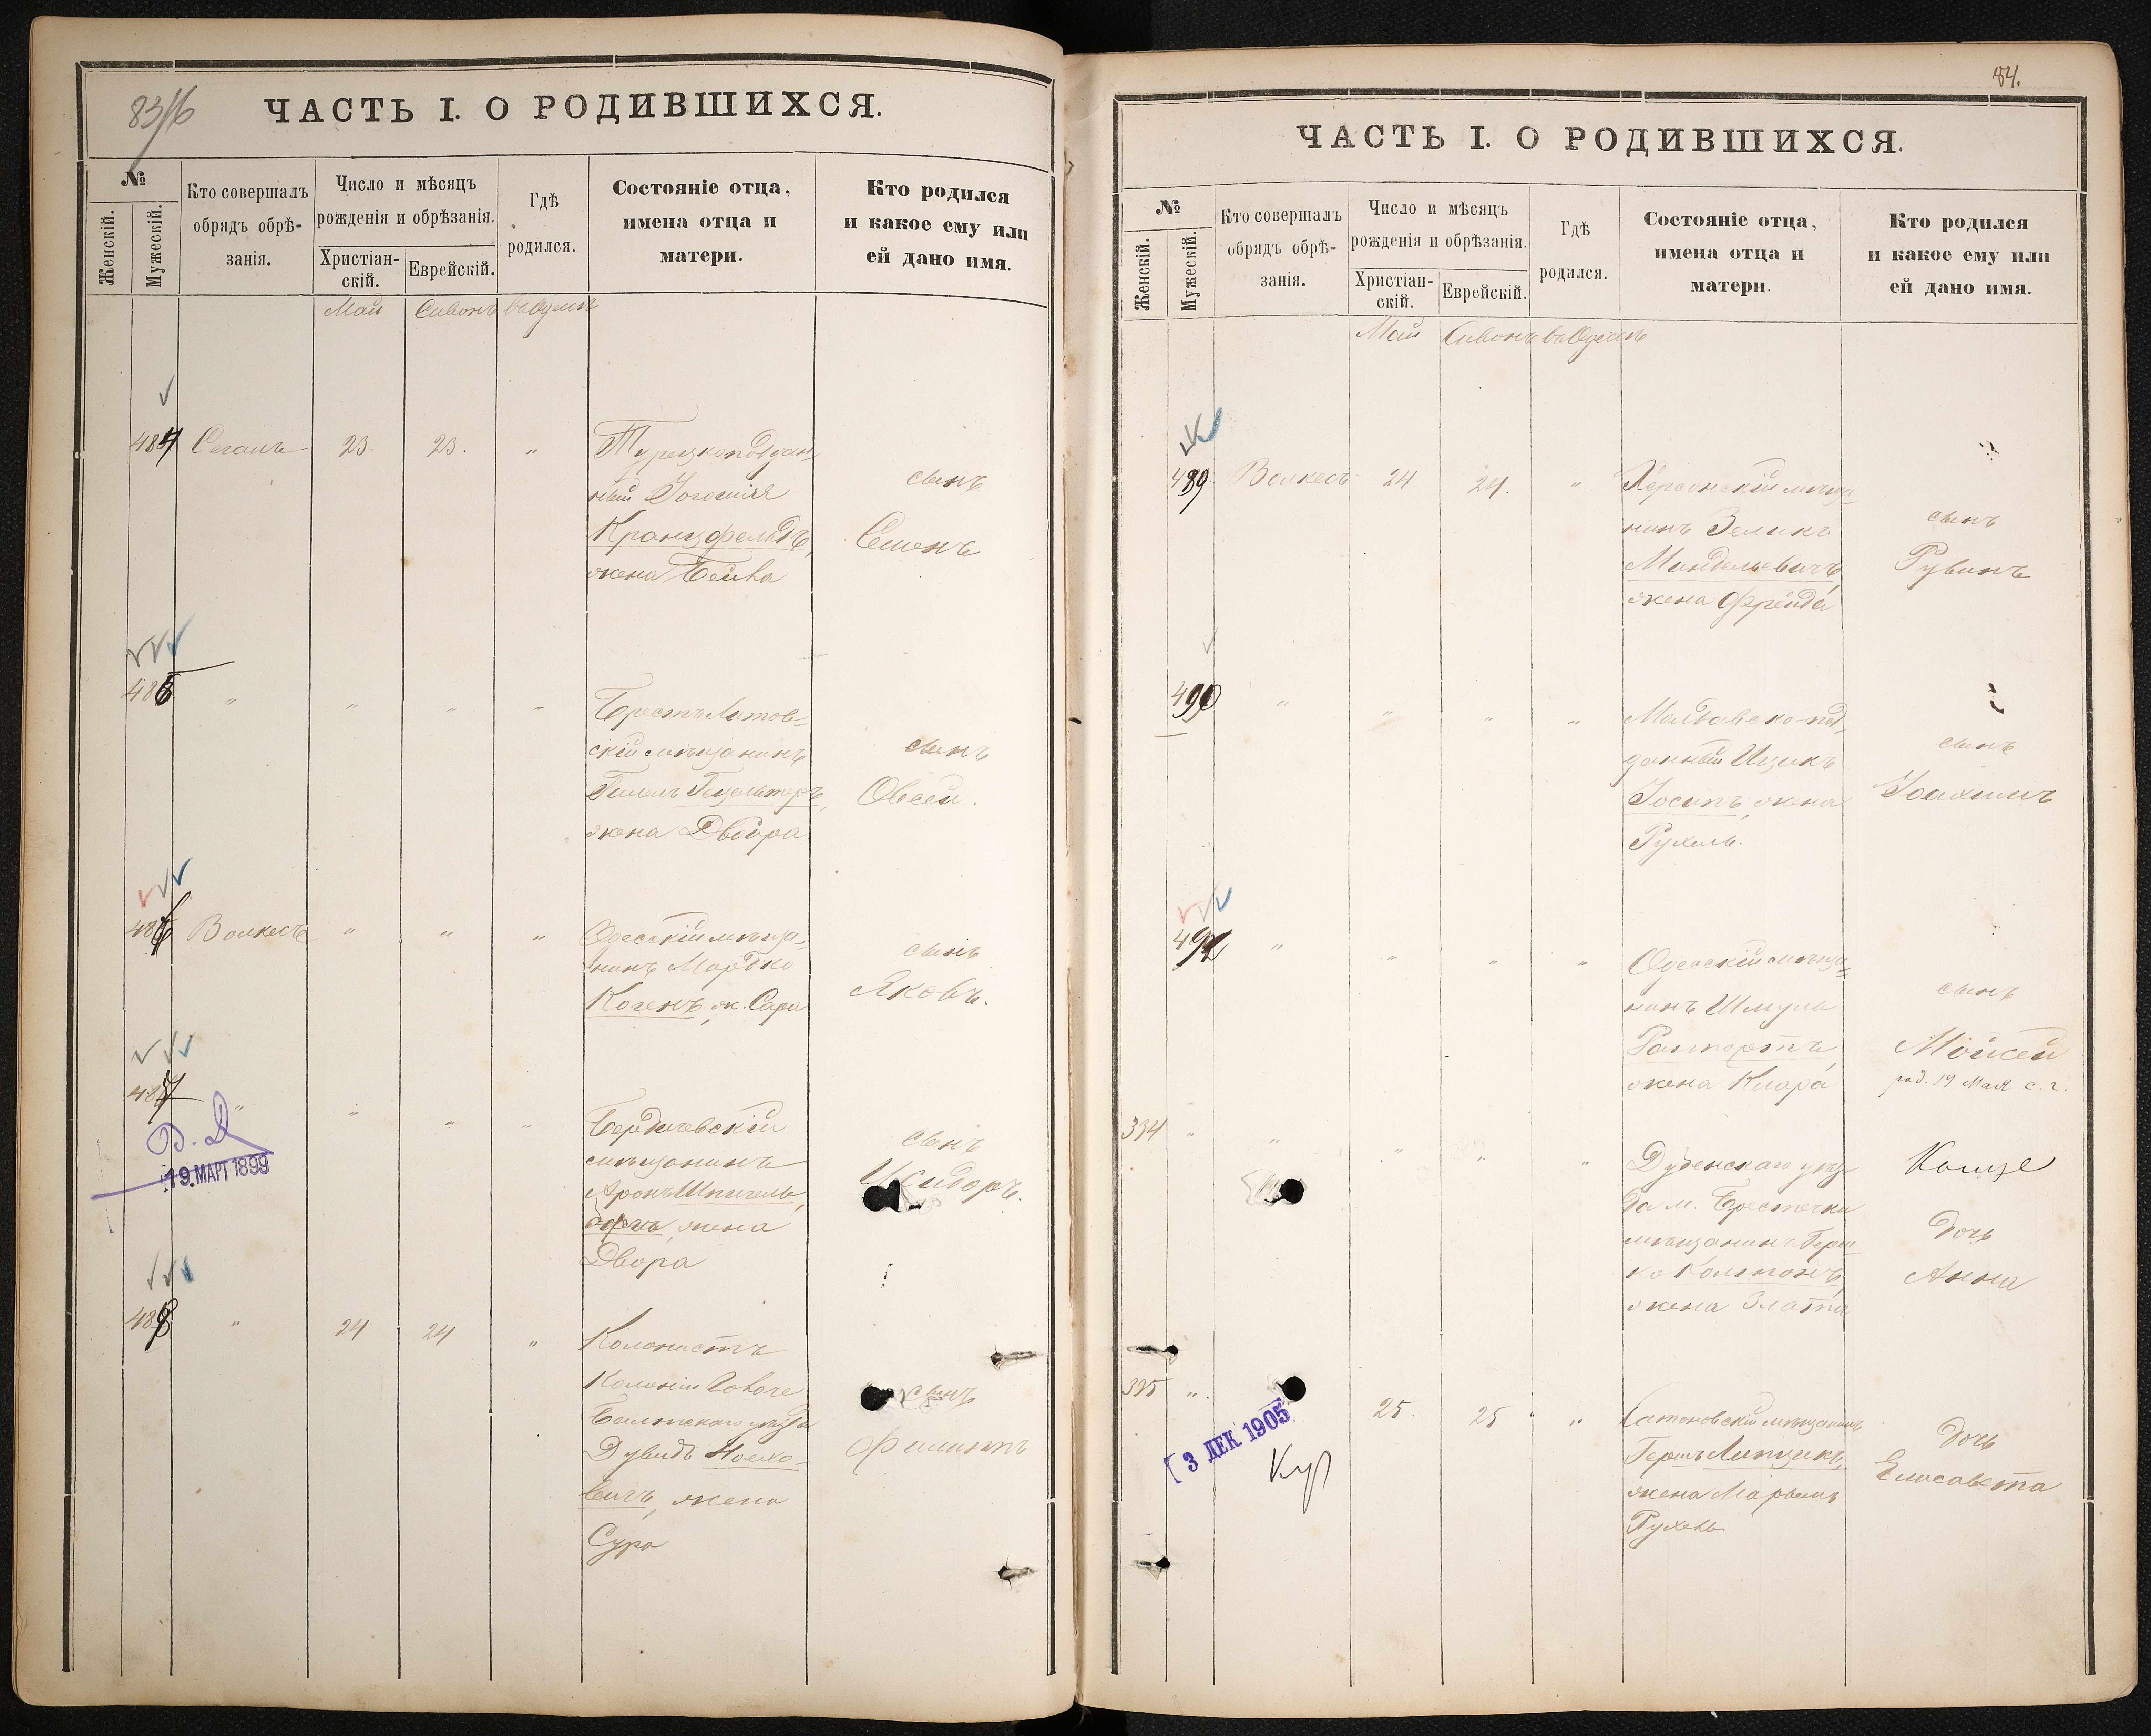 83/16
ЧАСТЬ I. О РОДИВШИХСЯ.
№
Женскій.
Мужескій.
Кто совершалъ
обрядъ обрѣ-
занія.
Число и мѣсяцъ
рожденія и обрѣзанія.
Христіан-
скій.
Еврейскій.
Гдѣ
родился.
Состояніе отца,
имена отца и
матери.
Кто родился
и какое ему или
ей дано имя.
Май Сивонъ въ Одессѣ
484 Сегалъ 23. 23. "
Турецкоподдан-
ный
Кранцфельдъ,
жена Бейла
сынъ
Семенъ
485 " " " "
Брестъ Литов-
скій мѣщанинъ
жена Двойра
сынъ
Овсей.
486 Волкесъ " " "
Одесскій мѣща-
нинъ Мордко
Когенъ, ж. Сара
сынъ
Яковъ.
487 " " " "
19. МАРТ 1899
Бердичевскій
мѣщанинъ
Аронъ Шпигель,
жена
Двора
сынъ
Исидоръ.
488 " 24 24 "
Колонистъ
Колоніи
Балтскаго уѣзда
Дувидъ Ноехо-
вичъ, жена
Сура
сынъ
Филиппъ
84.
ЧАСТЬ I. О РОДИВШИХСЯ.
№
Женскій.
Мужескій.
Кто совершалъ
обрядъ обрѣ-
занія.
Число и мѣсяцъ
рожденія и обрѣзанія.
Христіан-
скій.
Еврейскій.
Гдѣ
родился.
Состояніе отца,
имена отца и
матери.
Кто родился
и какое ему или
ей дано имя.
Май Сивонъ въ Одессѣ
489 Волкесъ 24 24. "
Херсонскій мѣща-
нинъ Зеликъ
Миндельевичъ,
жена Фрейда
сынъ
Рувинъ
490 " " " "
Молдавско-под-
данный Ицикъ
Іосипъ, жена
Рухель.
сынъ
Іоахимъ
491 " " " "
Одесскій мѣща-
нинъ Шмуль
Раппортъ,
жена Клара
сынъ
Мойсей
род. 19 Мая с. г.
334 " " " " "
Дубенскаго уѣз-
да м. Берестечки
мѣщанинъ Герш-
ко Колтонъ,
жена Злата
дочь
Анна
335 " 25. 25 "
3 ДЕК 1905
Гершъ Липшикъ,
жена Марьемъ
Рухель
дочь
Елисавета